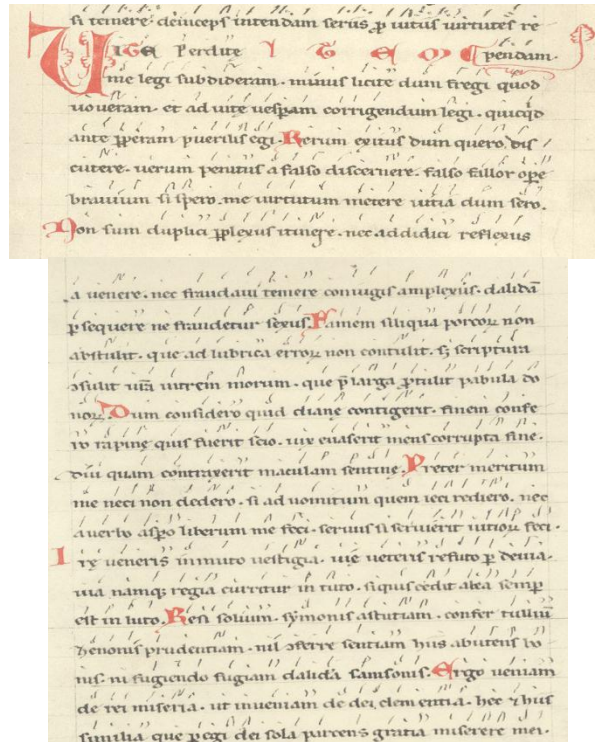 si temere deinceps intendam serius ꝑ uitiis uirtutes re
Vite perdite I T E M pendam.
me legi subdideram. minus licite dum fregi quod
uoueram. et ad uite uesꝑam corrigendum legi. quicqͥd
ante ꝓperam puerilis egi. Rerum exitus dum quero dis
cutere. uerum penitus a falso discernere. falso fallor oꝑe
brauium si spero. me uirtutum metere uitia dum sero.
Non sum duplici ꝑplexus itinere. nec addidici reflexus
a uenere. nec fraudaui temere coniugis amplexus. dalidā
ꝑsequere ne fraudetur sexus. Famem siliqua porcoꝝ non
abstulit. que ad lubrica erroꝝ non contulit. sꝫ scriptura
ꝯsulit uiā uitrem morum. que p̄larga ꝓtulit pabula do
noꝝ. Dum considero quid diane contigerit. finem confe
ro rapine quis fuerit scio. uix euaserit mens corrupta fine.
diu quam contraxerit maculam sentine. Preter meritum
me neci non dedero. si ad uomitum quem ieci rediero. nec
a uerbo aspo liberum me feci. seruus si seruierit uitioꝝ feci.
Irꝫ ueneris inmuto uestigia. uiē ueteris refuto ꝑ deuia.
uia namqꝫ regia curritur in tuto. siquis cedit alea semꝑ
est in luto. Resi solium. symonis astutiam. confer tulliū
Zenonis prudentiam. nil ꝯferre sentiam hiis abutens bo
nis. ni fugiendo fugiam dalida samsonis. Ergo ueniam
de rei miseria. ut inueniam de dei clementia. hec ⁊ hiis
similia que ꝑegi dei sola parcens gratia miserere mei.